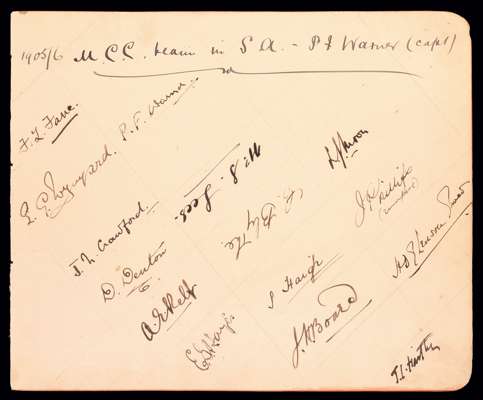 1905/6 M.C.C. team in S.A. - P F Warner (capt)
F. L. Fane.
P. F. Warner.
E. G. Wynyard.
W. S. Lees.
L J Moon
J. N. Crawford.
C. Blythe.
J. Phillips
(umpire)
D. Denton
A E Relf
S Haigh
H D G Leveson Gower
E G Hayes
J. H Board
J. C. Hartley